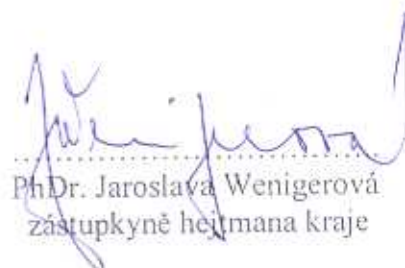 PhDr. Jaroslava Wenigerová
zástupkyně hejtmana kraje